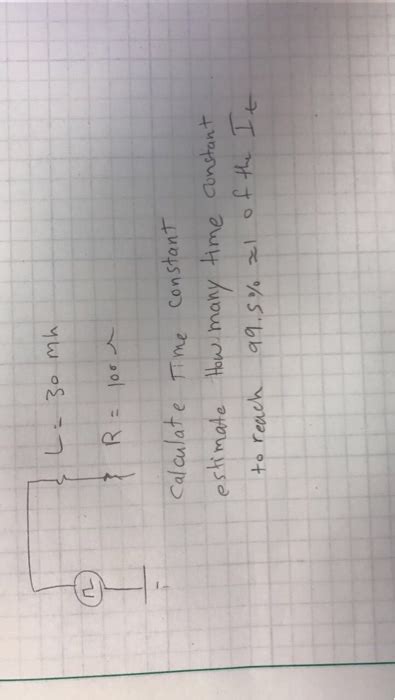 L = 30 mh
R = 100 Ω
Calculate Time constant
estimate How many time constant
to reach 99.5% ≈1 of the It